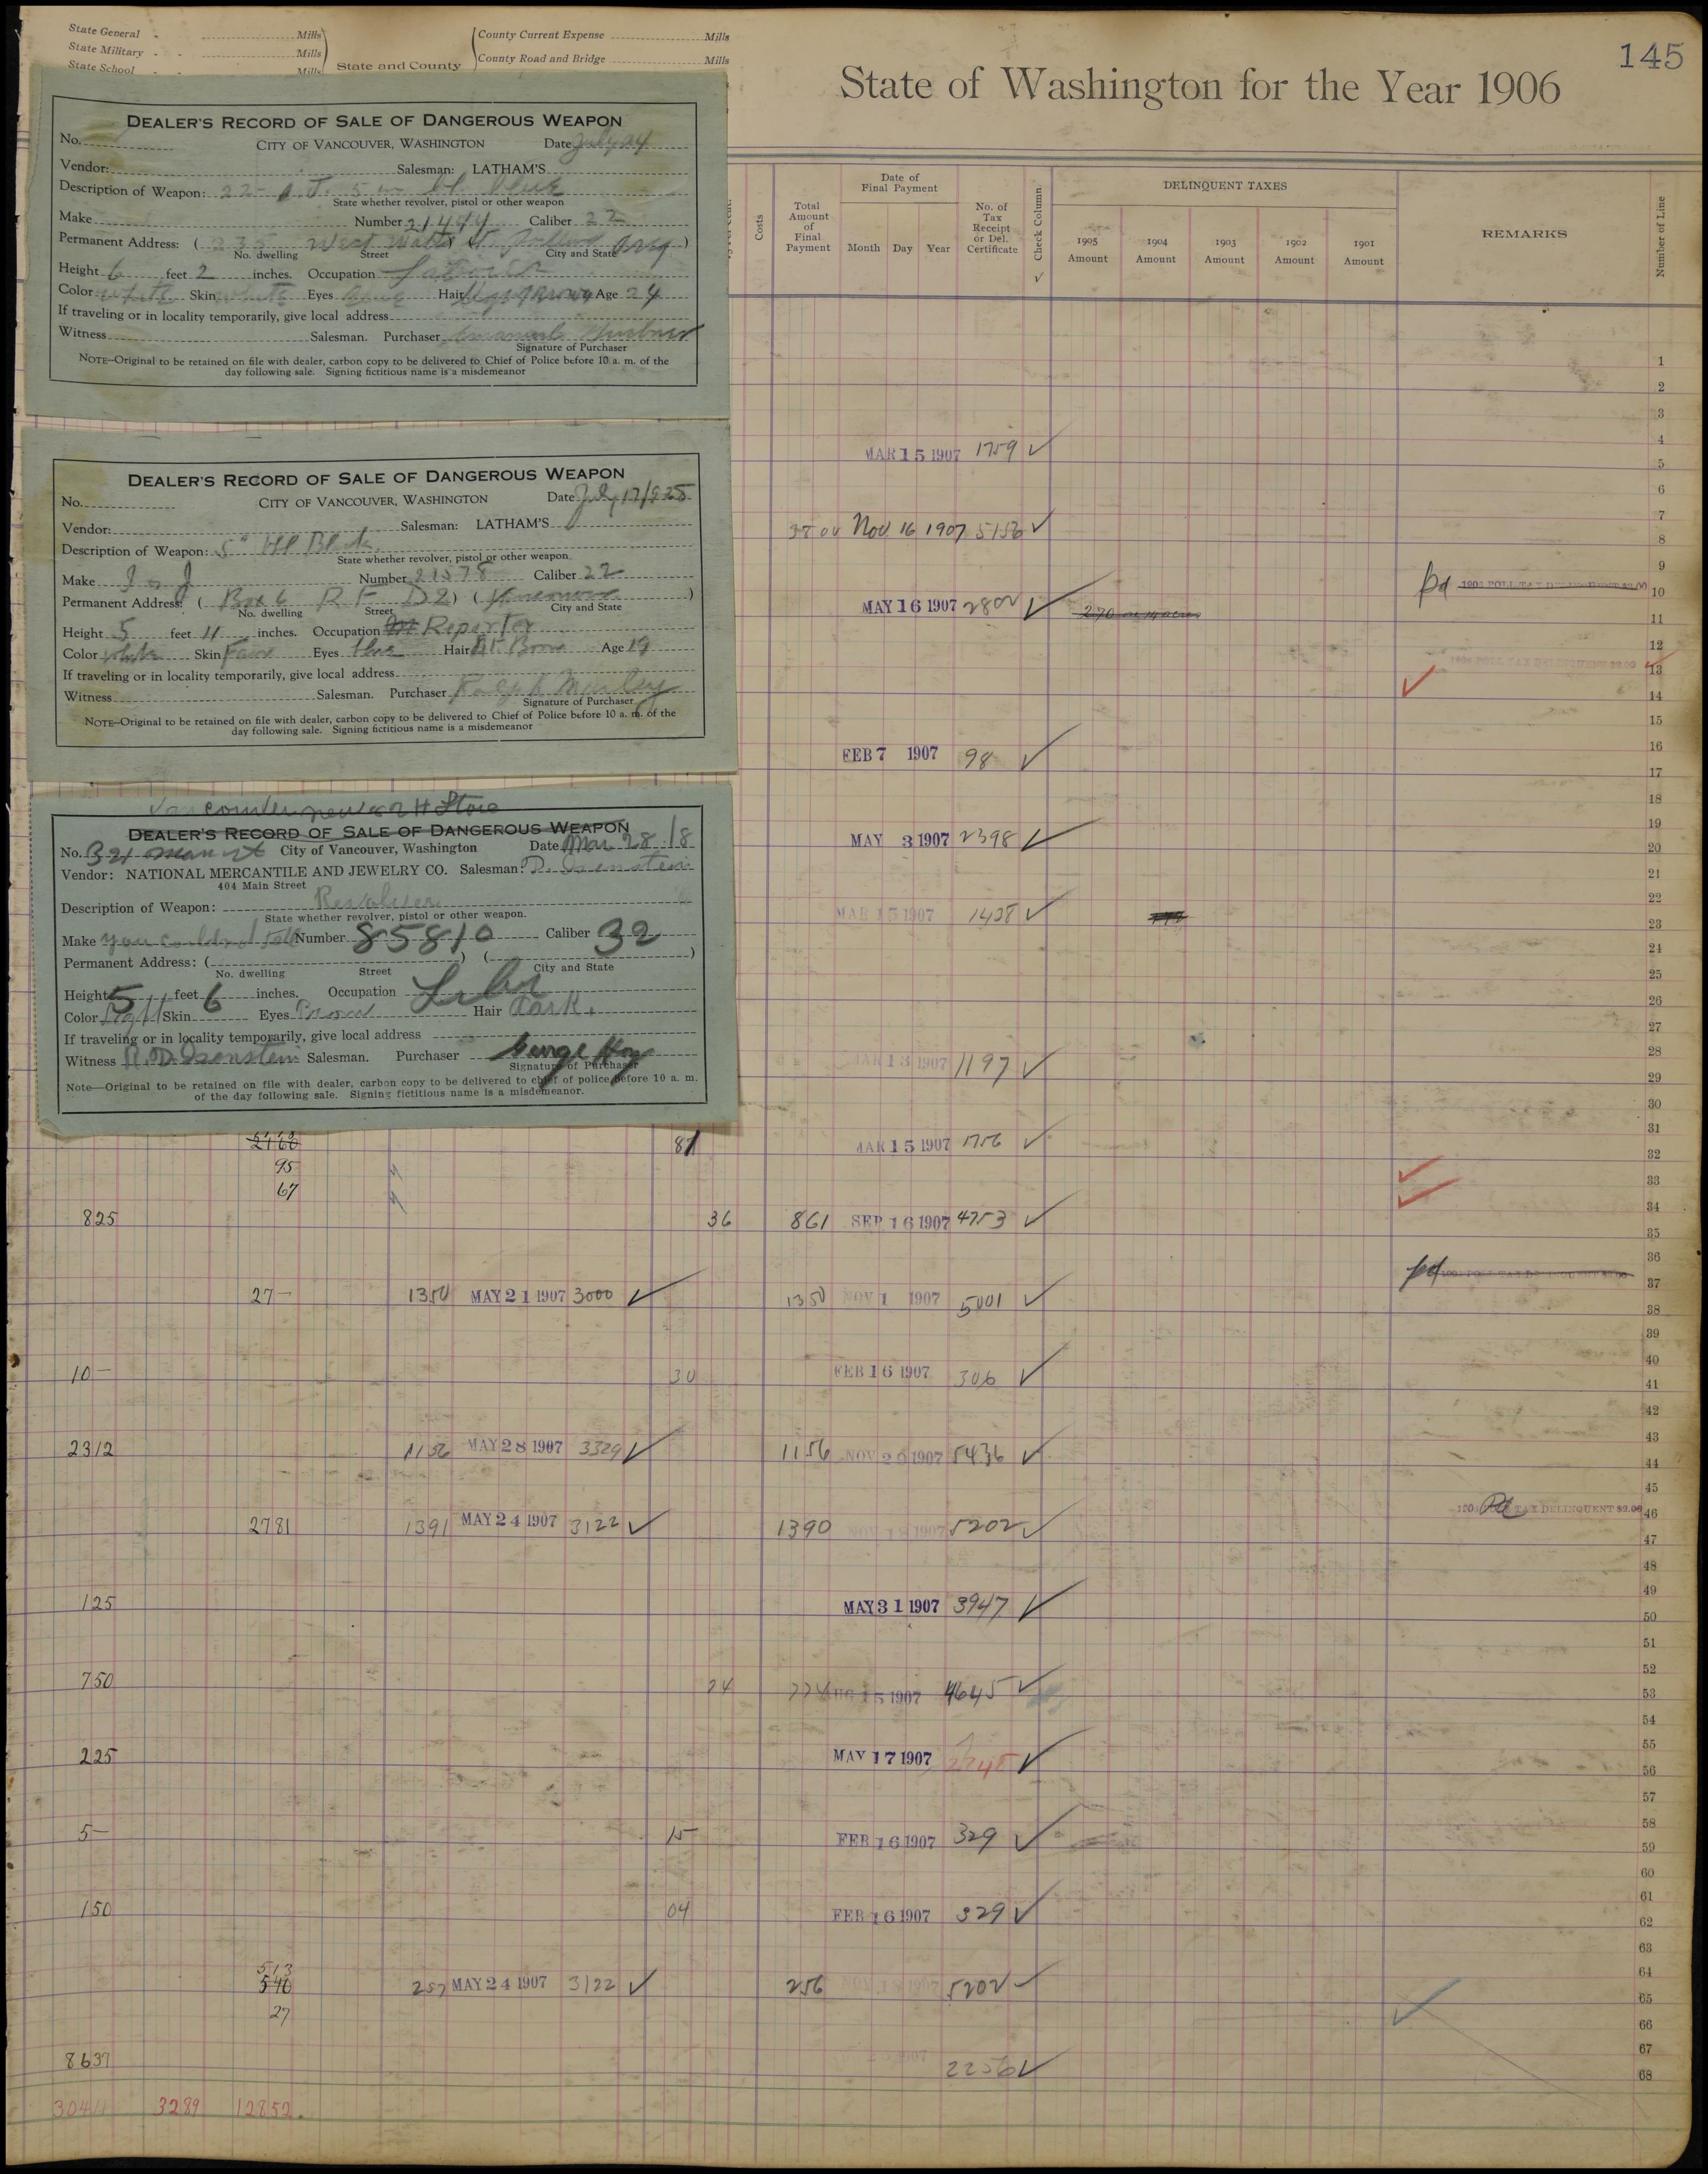 State General - Mills
State Military - - Mills
State School - - Mills
State and County
County Current Expense Mills
County Road and Bridge Mills
145
State of Washington for the Year 1906
DEALER'S RECORD OF SALE OF DANGEROUS WEAPON
No. CITY OF VANCOUVER, WASHINGTON Date July 24
Vendor: Salesman: LATHAM'S
Description of Weapon: 22- 5 in bl. blue
State whether revolver, pistol or other weapon
Make Number 21444 Caliber 22
Permanent Address: ( 235 West St. )
No. dwelling Street City and State
Height 6 feet 2 inches. Occupation
Color white Skin white Eyes Hair Light Brown Age 24
If traveling or in locality temporarily, give local address
Witness Salesman. Purchaser
Signature of Purchaser
NOTE—Original to be retained on file with dealer, carbon copy to be delivered to Chief of Police before 10 a. m. of the
day following sale. Signing fictitious name is a misdemeanor
DEALER'S RECORD OF SALE OF DANGEROUS WEAPON
No. CITY OF VANCOUVER, WASHINGTON Date July 17/925
Vendor: Salesman: LATHAM'S
Description of Weapon: 5"
State whether revolver, pistol or other weapon
Make Number 21578 Caliber 22
Permanent Address: ( Box 6 R F D2 ) ( Vancouver )
No. dwelling Street City and State
Height 5 feet 11 inches. Occupation Reporter
Color white Skin Fair Eyes blue Hair Age 19
If traveling or in locality temporarily, give local address
Witness Salesman. Purchaser Ralph Manley
Signature of Purchaser
NOTE—Original to be retained on file with dealer, carbon copy to be delivered to Chief of Police before 10 a. m. of the
day following sale. Signing fictitious name is a misdemeanor
Vancouver new & 2 H Store
DEALER'S RECORD OF SALE OF DANGEROUS WEAPON
No. City of Vancouver, Washington Date Mar 28 18
Vendor: NATIONAL MERCANTILE AND JEWELRY CO. Salesman: Isenstein
404 Main Street
Description of Weapon: Revolver
State whether revolver, pistol or other weapon.
Make Number 85810 Caliber 32
Permanent Address: ( ) ( )
No. dwelling Street City and State
Height 5 feet 6 inches. Occupation
Color Light Skin Eyes Brown Hair Dark.
If traveling or in locality temporarily, give local address
Witness Isenstein Salesman. Purchaser George Hoy
Signature of Purchaser
Note—Original to be retained on file with dealer, carbon copy to be delivered to chief of police before 10 a. m.
of the day following sale. Signing fictitious name is a misdemeanor.
Costs
Total Amount of Final Payment
Date of Final Payment
Month Day Year
No. of Tax Receipt or Del. Certificate
Check Column
✓
DELINQUENT TAXES
1905 Amount
1904 Amount
1903 Amount
1902 Amount
1901 Amount
REMARKS
Number of Line
1
2
3
4
MAR 15 1907 1759 ✓
5
6
7
Nov. 16 1907 5156 ✓
8
9
pd POLL TAX DELINQUENT $2.00 10
MAY 16 1907 2802 ✓
11
12
POLL TAX DELINQUENT $2.00 13
14
15
16
FEB 7 1907 98 ✓
17
18
19
MAY 3 1907 2398 ✓
20
21
22
MAR 15 1907 1428 ✓ 23
24
25
26
27
28
MAR 13 1907 1197 ✓
29
30
31
81 MAR 15 1907 1756 ✓
32
95
33
67
34
825 36 861 SEP 16 1907 4753 ✓
35
36
pd 37
27— 1350 MAY 21 1907 3000 ✓ 1350 NOV 1 1907 5001 ✓
38
39
40
10— 30 FEB 16 1907 306 ✓
41
42
43
2312 1156 MAY 28 1907 3329 ✓ 1156 NOV 20 1907 5436 ✓
44
45
Pd TAX DELINQUENT $2.00 46
2781 1391 MAY 24 1907 3122 ✓ 1390 NOV 18 1907 5202 ✓
47
48
49
125 MAY 31 1907 3947 ✓
50
51
52
750 24 774 AUG 15 1907 4645 ✓
53
54
55
225 MAY 17 1907 ✓
56
57
58
5— 15 FEB 16 1907 329 ✓
59
60
61
150 04 FEB 16 1907 329 ✓
62
63
513
64
540 257 MAY 24 1907 3122 ✓ 256 NOV 18 1907 5202 ✓
65
27
66
67
8637 2256 ✓
68
3289 12852